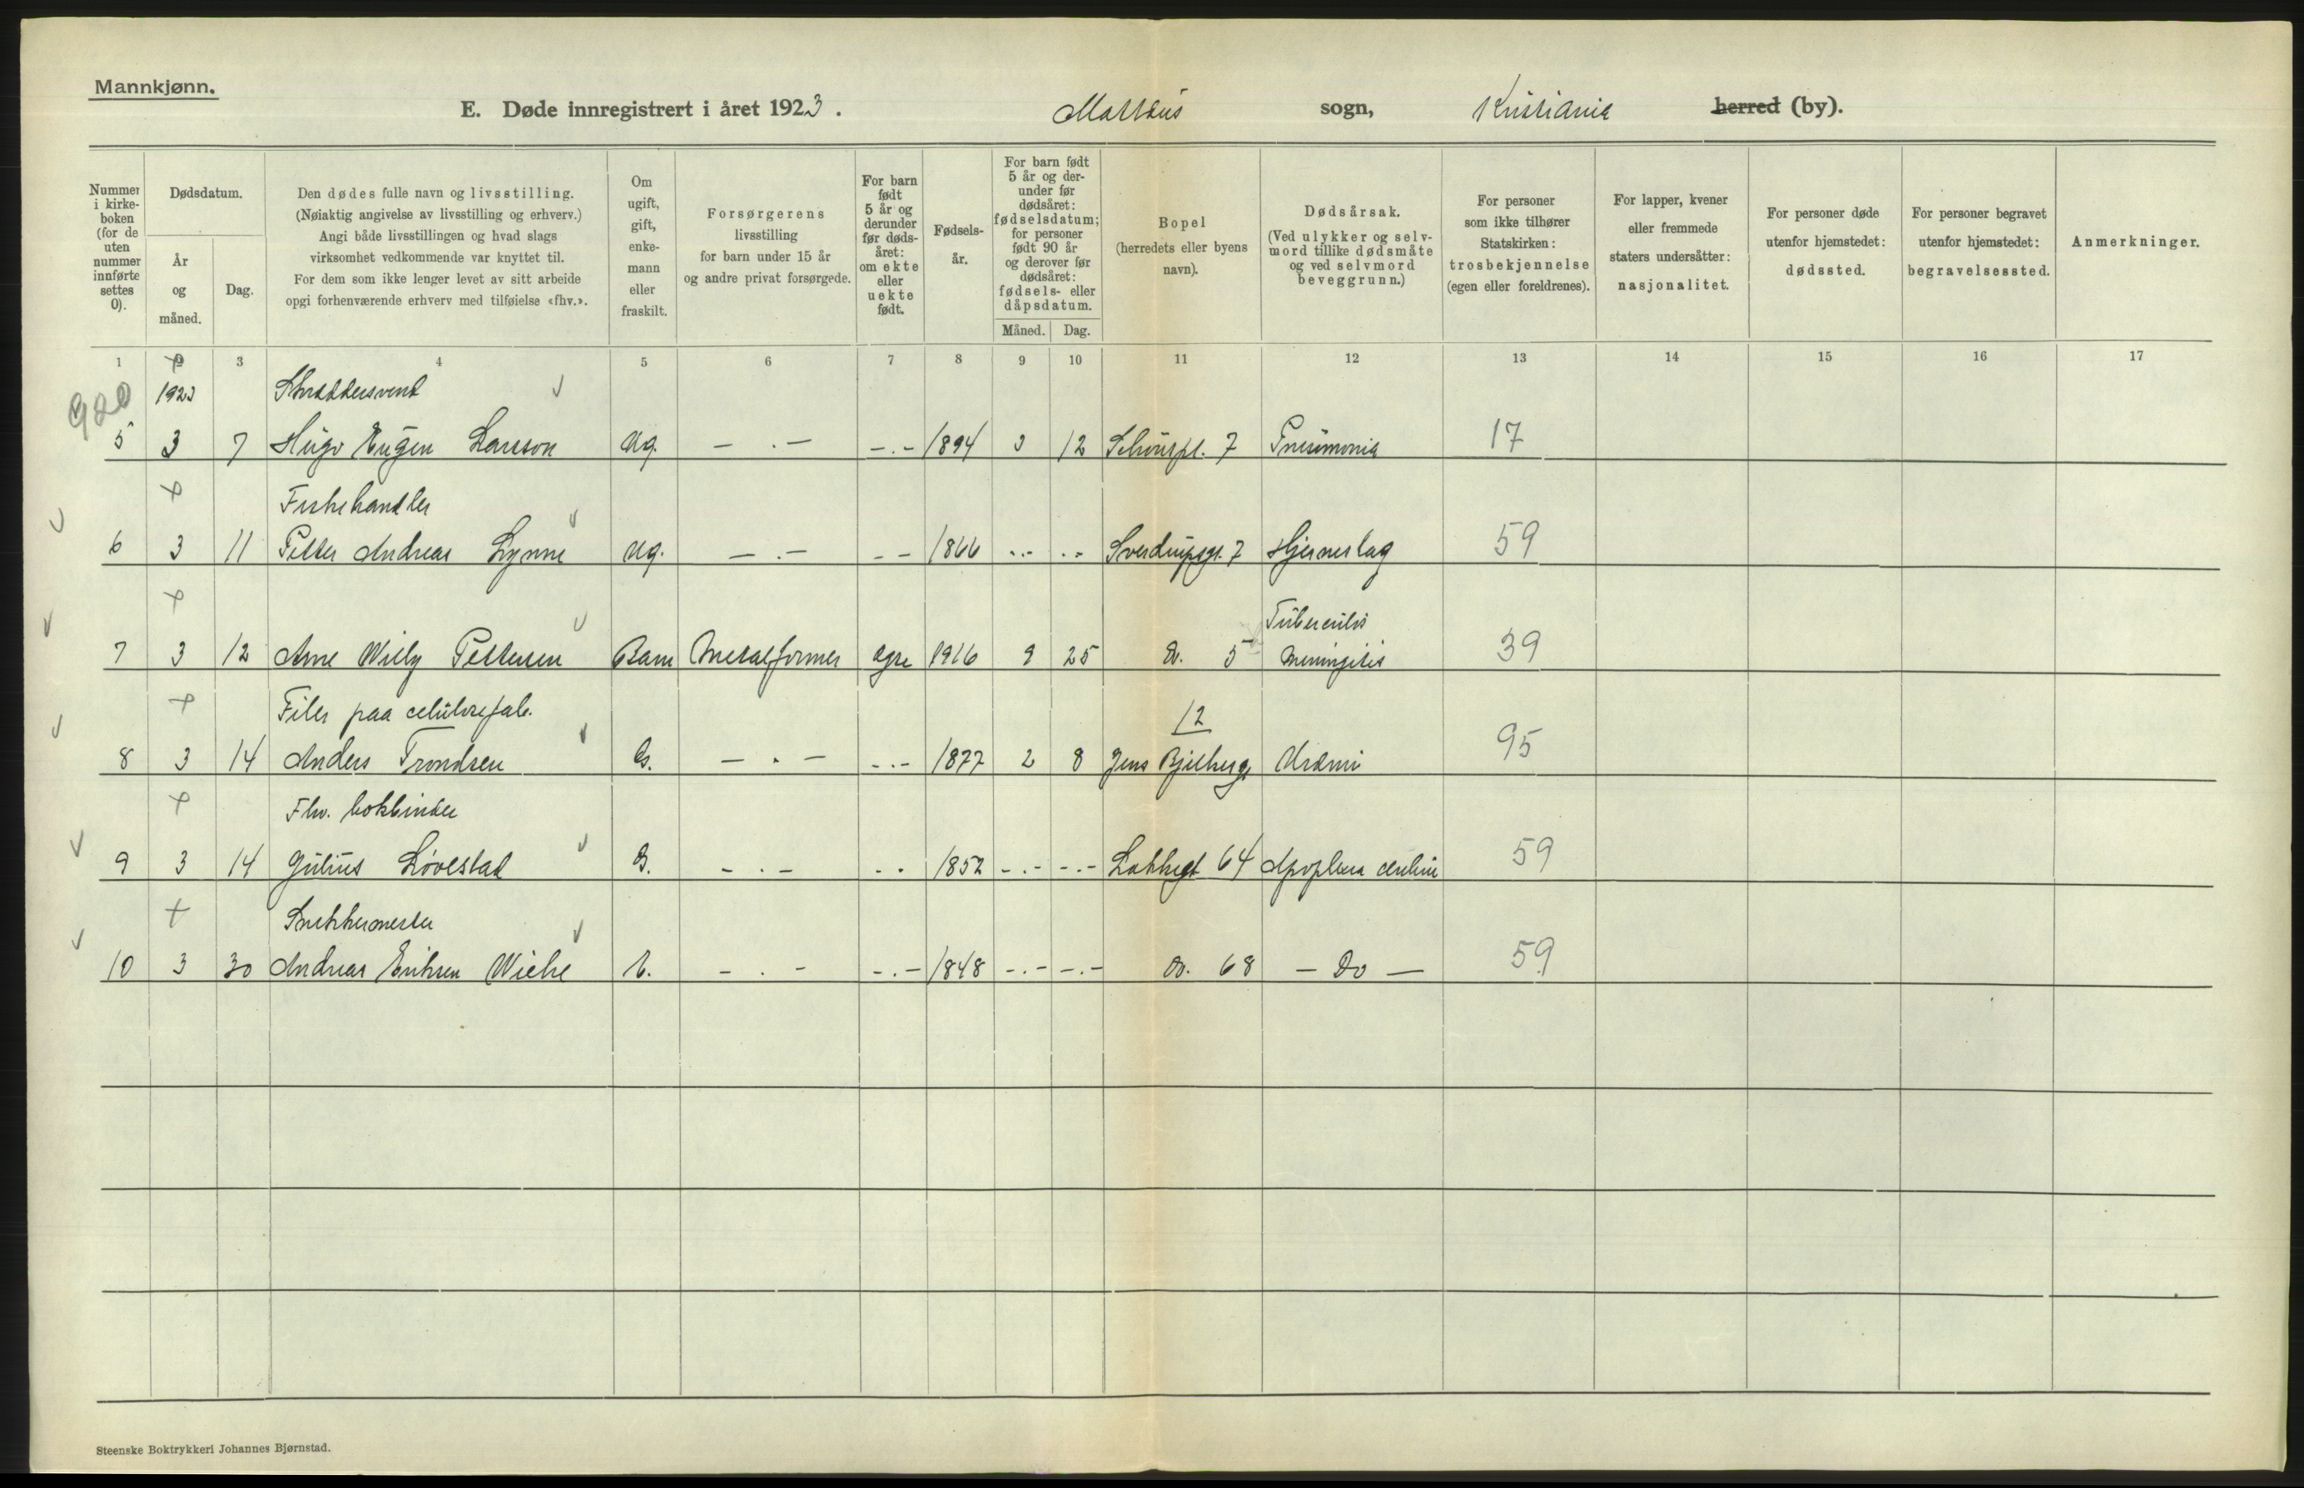 Mannkjønn.
E. Døde innregistrert i året 1923. Mattæus sogn, Kristiania herred (by).
Nummer i kirkeboken (for de uten nummer innførte settes 0).
Dødsdatum.
År og måned.
Dag.
Den dødes fulle navn og livsstilling.
(Nøiaktig angivelse av livsstilling og erhverv.)
Angi både livsstillingen og hvad slags
virksomhet vedkommende var knyttet til.
For dem som ikke lenger levet av sitt arbeide
opgi forhenværende erhverv med tilføielse «fhv.».
Om ugift, gift, enkemann eller fraskilt.
Forsørgerens
livsstilling
for barn under 15 år
og andre privat forsørgede.
For barn født 5 år og derunder før dødsåret: om ekte eller uekte født.
Fødselsår.
For barn født 5 år og derunder før dødsåret: fødselsdatum; for personer født 90 år og derover før dødsåret: fødsels- eller dåpsdatum.
Måned. Dag.
Bopel
(herredets eller byens navn).
Dødsårsak.
(Ved ulykker og selvmord tillike dødsmåte og ved selvmord beveggrunn.)
For personer
som ikke tilhører
Statskirken:
trosbekjennelse
(egen eller foreldrenes).
For lapper, kvener
eller fremmede
staters undersåtter:
nasjonalitet.
For personer døde
utenfor hjemstedet:
dødssted.
For personer begravet
utenfor hjemstedet:
begravelsessted.
Anmerkninger.
1 2 3 4 5 6 7 8 9 10 11 12 13 14 15 16 17
920 1923 Skræddersvend
5 3 7 Hugo Eugen Larsson Ug. — . — — . — 1894 3 12 Schouspl. 7 Pneumonia 17
Fiskehandler
6 3 11 Petter Andreas Lynne Ug. — . — — — 1866 Sverdrupsgt. 7 Hjerneslag 59
Tuberculøs
7 3 12 Arne Willy Pettersen Barn Metalformer egte 1916 9 25 Do. 5 Meningitis 39
Filer paa celulosefab. 12
8 3 14 Anders Trondsen G. — . — — . — 1877 2 8 Jens Bjelkesg. Uræmi 95
Fhv. bokbinder
9 3 14 Julius Løvestad G. — . — 1852 — . — — . — Lakkegt 64 Apoplexia cerebri 59
Snekkermester
10 3 30 Andreas Eriksen Wiche — . — — . — 1848 — . — — . — Do. 68 — Do — 59
Steenske Boktrykkeri Johannes Bjørnstad.